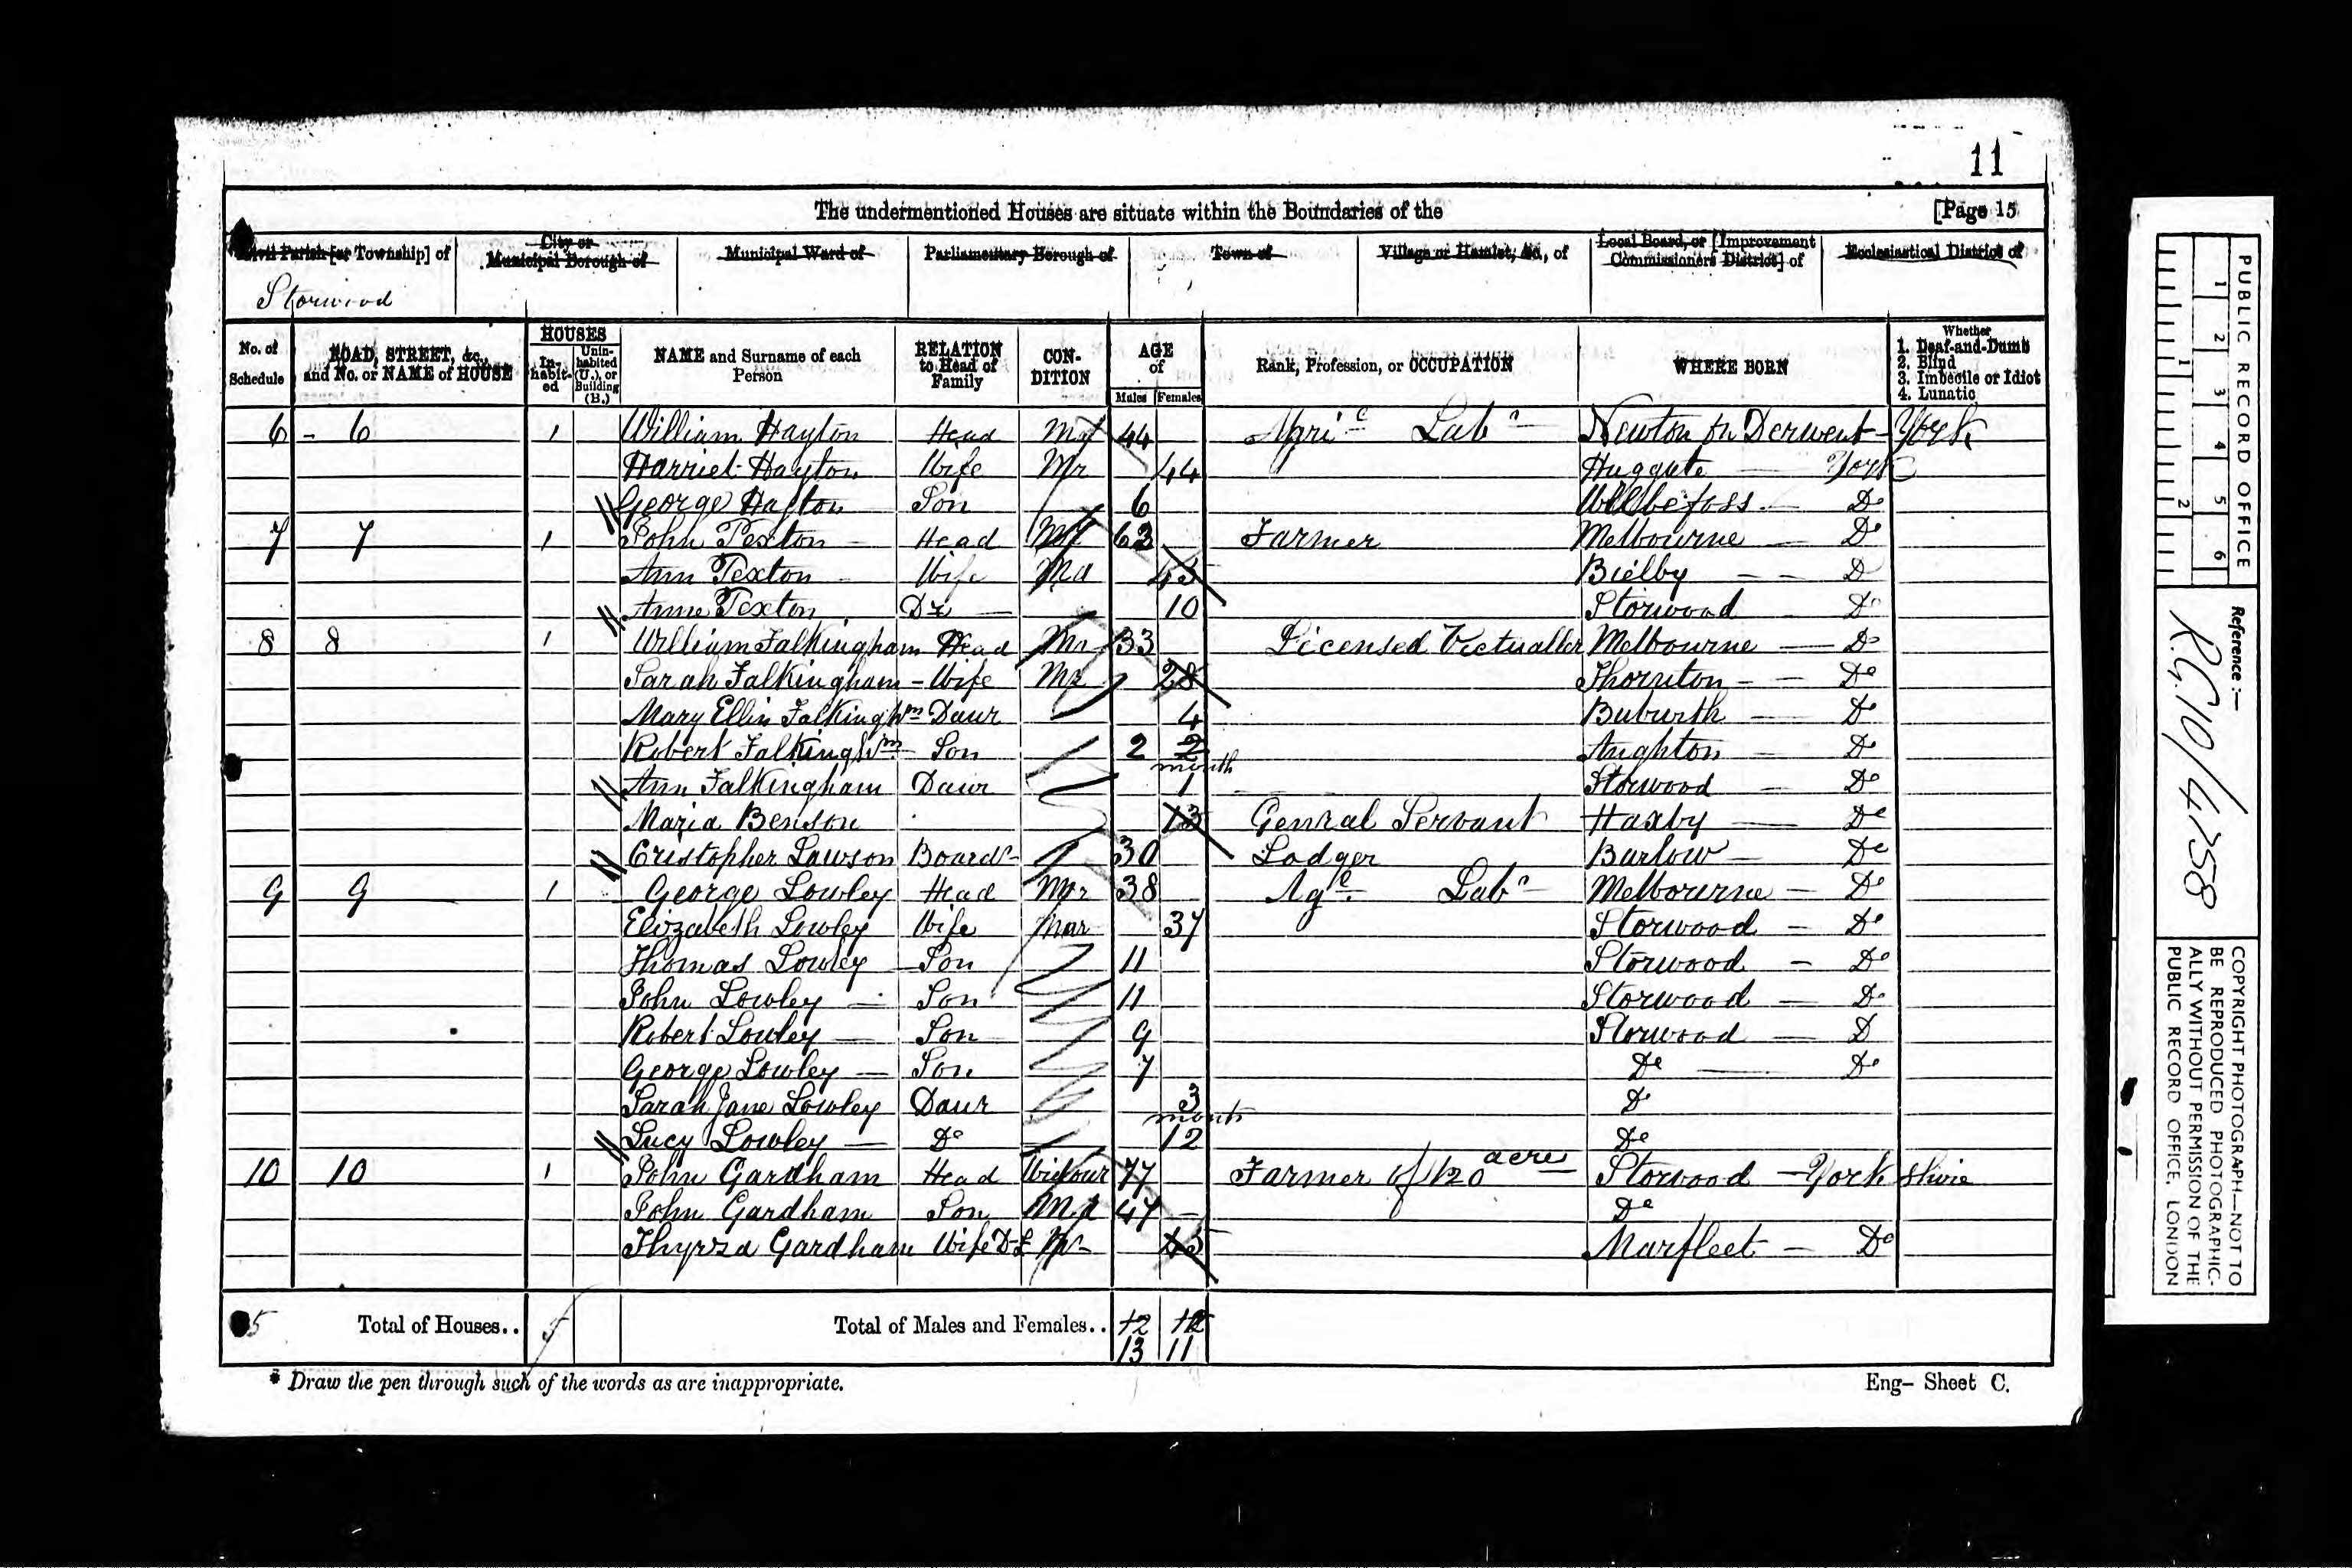 11
The undermentioned Houses are situate within the Boundaries of the [Page 15
Civil Parish [or Township] of
City or Municipal Borough of
Municipal Ward of
Parliamentary Borough of
Town of
Village or Hamlet, &c., of
Local Board, or [Improvement Commissioners District] of
Ecclesiastical District of
Storwood
No. of Schedule
ROAD, STREET, &c., and No. or NAME of HOUSE
HOUSES
In-habit-ed
Unin-habited (U.), or Building (B.)
NAME and Surname of each Person
RELATION to Head of Family
CON-DITION
AGE of
Males Females
Rank, Profession, or OCCUPATION
WHERE BORN
Whether
1. Deaf-and-Dumb
2. Blind
3. Imbecile or Idiot
4. Lunatic
6 - 6 1 William Hayton Head Mr 44 Agric Labr Newton on Derwent - York
Harriet Hayton Wife Mr 44 Huggate York
George Hayton Son 6 Wilbefoss Do
7 7 1 John Pexton Head Mr 63 Farmer Melbourne Do
Ann Pexton Wife Md 43 Bielby D
Anne Pexton Dr 10 Storwood Do
8 8 1 William Falkingham Head Mr 33 Licensed Victualler Melbourne Do
Sarah Falkingham - Wife Mr 28 Thornton Do
Mary Ellin Falkinghm Daur 4 Buburth Do
Robert Falkinghm Son 2 2 Aughton Do
month
Ann Falkingham Daur 1 Storwood Do
Maria Benson 13 Genral Servant Haxby Do
Cristopher Lawson Boardr 30 Lodger Barlow Do
9 9 1 George Lowley Head Mr 38 Age Labr Melbourne Do
Elizabeth Lowley Wife Mar 37 Storwood Do
Thomas Lowley Son 11 Storwood Do
John Lowley Son 11 Storwood Do
Robert Lowley Son 9 Storwood D
George Lowley Son 7 Do Do
Sarah Jane Lowley Daur 3 Do
month
Lucy Lowley Do 12 Do
10 10 1 John Gardham Head Widour 77 Farmer of 120 acres Storwood - York shire
John Gardham Son Md 47 Do
Thyrza Gardham Wife Do Mr 45 Marfleet Do
5 Total of Houses.. 5 Total of Males and Females.. 12 12
13 11
* Draw the pen through such of the words as are inappropriate.
Eng- Sheet C.
PUBLIC RECORD OFFICE
1 2 3 4 5 6
1 2
Reference :-
R.G.10/4758
COPYRIGHT PHOTOGRAPH—NOT TO
BE REPRODUCED PHOTOGRAPHIC-
ALLY WITHOUT PERMISSION OF THE
PUBLIC RECORD OFFICE, LONDON